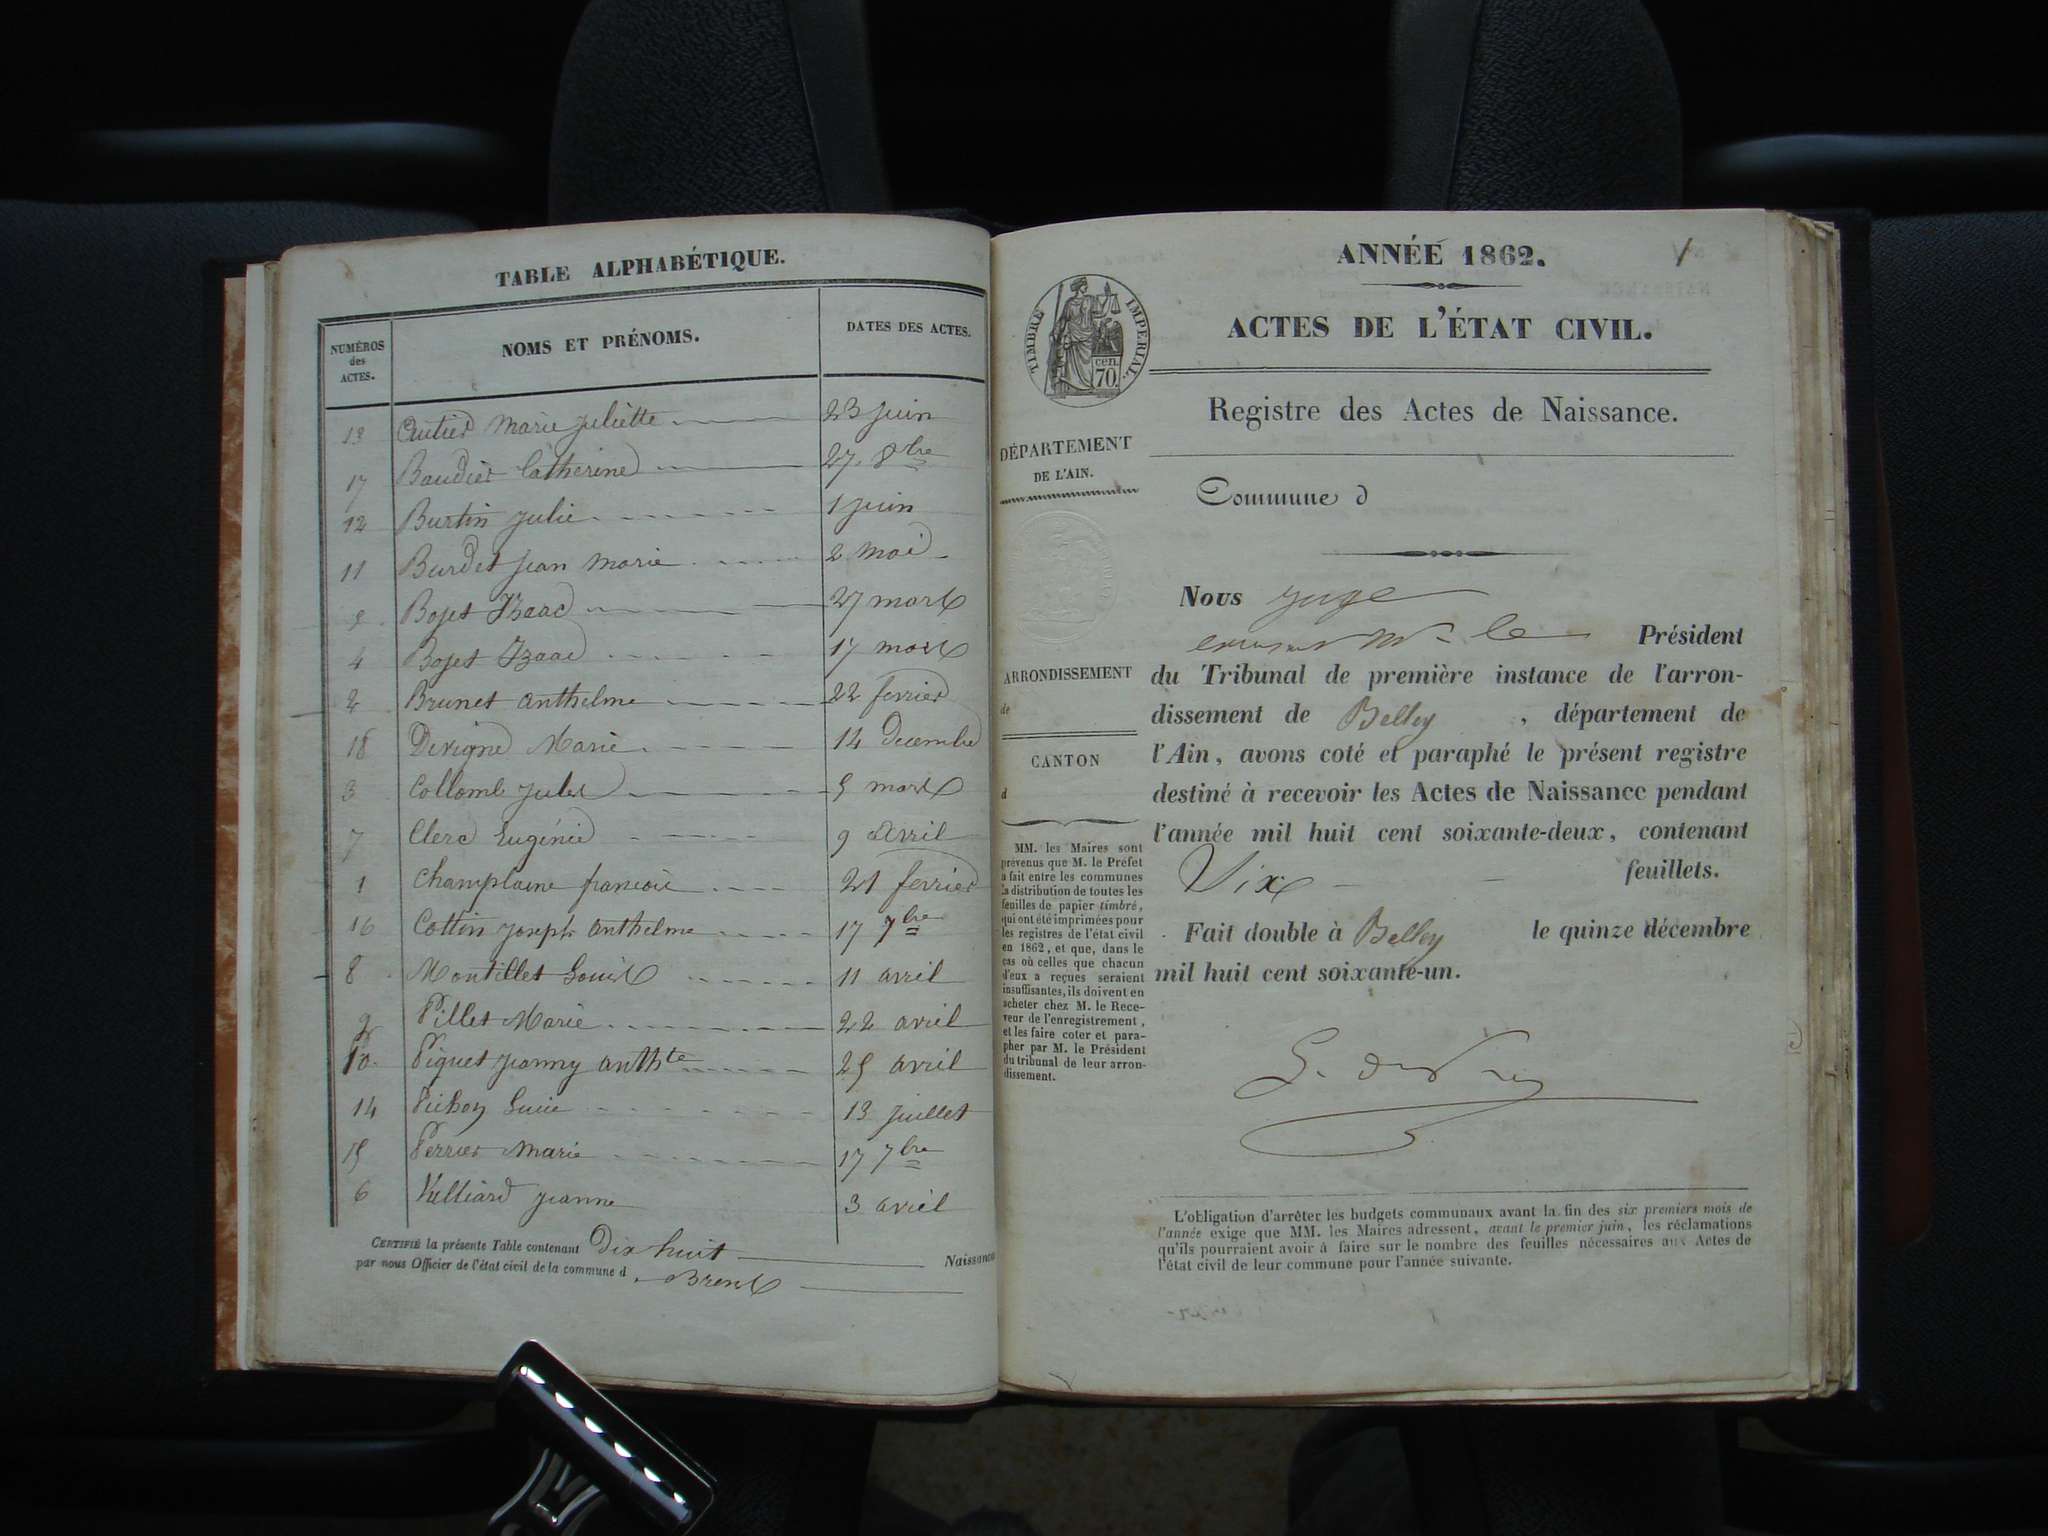 TABLE ALPHABÉTIQUE.
NUMÉROS des ACTES.
NOMS ET PRÉNOMS.
DATES DES ACTES.
13 Marie Juliette 23 juin
17 Baudier Catherine 27. 8bre
12 Burtin Julie 1 juin
11 Burdet Jean Marie 2 mai
Bojet Izaac 27 mars
4 Bojet Izaac 17 mars
2 Brunet anthelme 22 fevrier
18 Marie 14 Decembre
3 Collomb Jules 5 mars
7 Clerc Eugénie 9 Avril
1 Champlane francois 21 fevrier
16 Cottin Joseph anthelme 17 7bre
8 Montillet Louis 11 avril
9 Pillet Marie 22 avril
10. Piguet Janny anthte 25 avril
14 Lucie 13 juillet
15 Perrier Marie 17 7bre
6 Vulliard Jeanne 3 avril
CERTIFIÉ la présente Table contenant Dix huit Naissance
par nous Officier de l'état civil de la commune d Brens
1
ANNÉE 1862.
TIMBRE IMPERIAL.
cen. 70.
ACTES DE L'ÉTAT CIVIL.
Registre des Actes de Naissance.
DÉPARTEMENT
DE L'AIN.
Commune d
ARRONDISSEMENT
de
CANTON
d
MM. les Maires sont
prévenus que M. le Préfet
a fait entre les communes
la distribution de toutes les
feuilles de papier timbré,
qui ont été imprimées pour
les registres de l'état civil
en 1862, et que, dans le
cas où celles que chacun
d'eux a reçues seraient
insuffisantes, ils doivent en
acheter chez M. le Rece-
veur de l'enregistrement,
et les faire coter et para-
pher par M. le Président
du tribunal de leur arron-
dissement.
Nous juge
Mr le Président
du Tribunal de première instance de l'arron-
dissement de Belley, département de
l'Ain, avons coté et paraphé le présent registre
destiné à recevoir les Actes de Naissance pendant
l'année mil huit cent soixante-deux, contenant
feuillets.
Fait double à Belley le quinze décembre
mil huit cent soixante-un.
L'obligation d'arrêter les budgets communaux avant la fin des six premiers mois de
l'année exige que MM. les Maires adressent, avant le premier juin, les réclamations
qu'ils pourraient avoir à faire sur le nombre des feuilles nécessaires aux Actes de
l'état civil de leur commune pour l'année suivante.